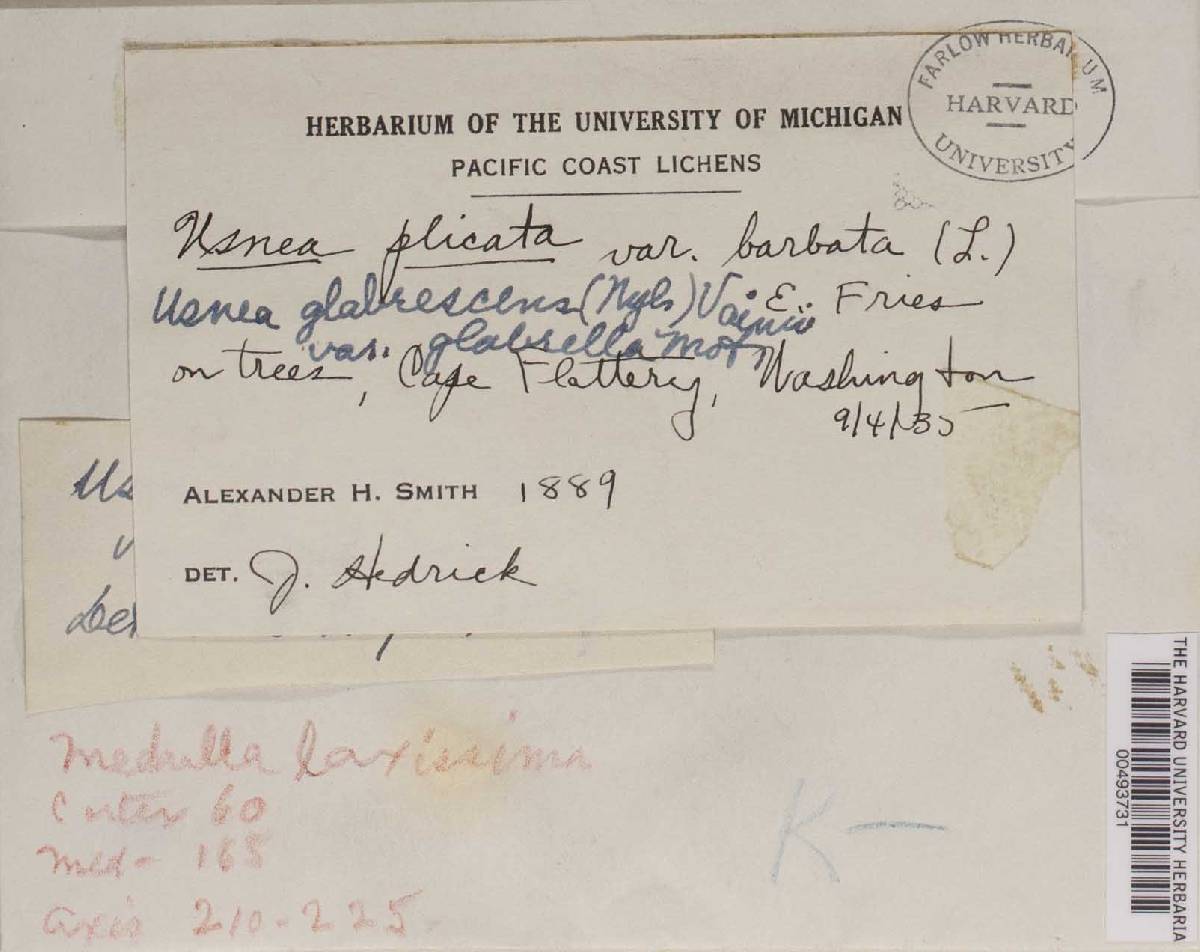 HERBARIUM OF THE UNIVERSITY OF MICHIGAN
PACIFIC COAST LICHENS
FARLOW HERBARIUM
HARVARD
UNIVERSITY
Usnea plicata var. barbata (L.)
E. Fries
Usnea glabrescens (Nyl.) Vainio
var. glabrella Mot
on trees, Cape Flattery, Washington
9/4/35
ALEXANDER H. SMITH 1889
DET. J. Hedrick
Us
v
Det
Medulla laxissima
Cortex 60
Med- 165
axis 210-225-
K—
THE HARVARD UNIVERSITY HERBARIA
00493731